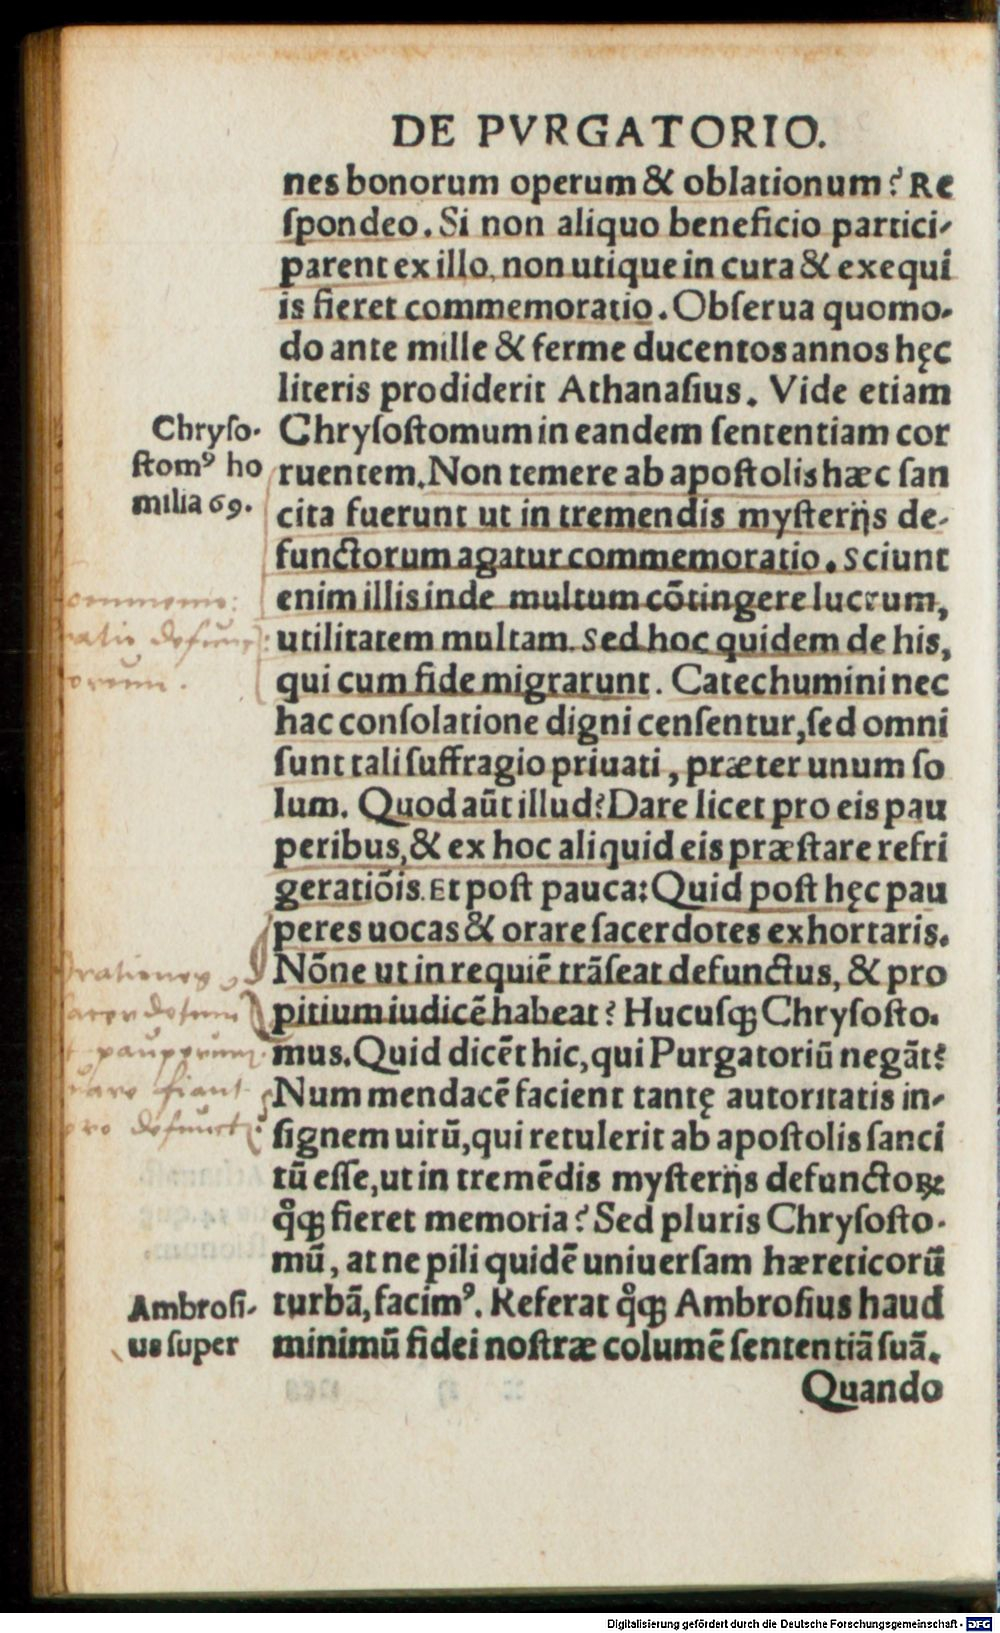 DE PVRGATORIO.
nes bonorum operum & oblationum? Re
ſpondeo. Si non aliquo beneficio partici-
parent ex illo, non utique in cura & exequi
is fieret commemoratio. Obſerua quomo-
do ante mille & ferme ducentos annos hęc
literis prodiderit Athanaſius. Vide etiam
Chryſoſtomum in eandem ſententiam cor
ruentem. Non temere ab apoſtolis hæc ſan
cita fuerunt ut in tremendis myſterijs de-
functorum agatur commemoratio. Sciunt
enim illis inde multum cōtingere lucrum,
utilitatem multam. Sed hoc quidem de his,
qui cum fide migrarunt. Catechumini nec
hac conſolatione digni cenſentur, ſed omni
ſunt tali ſuffragio priuati, præter unum ſo
lum. Quod aūt illud? Dare licet pro eis pau
peribus, & ex hoc aliquid eis præſtare refri
geratiōis. Et poſt pauca: Quid poſt hęc pau
peres uocas & orare ſacerdotes exhortaris.
Nōne ut in requiē trāſeat defunctus, & pro
pitium iudicē habeat? Hucuſqꝫ Chryſoſto-
mus. Quid dicēt hic, qui Purgatoriū negāt?
Num mendacē facient tantę autoritatis in-
ſignem uirū, qui retulerit ab apoſtolis ſanci
tū eſſe, ut in tremēdis myſterijs defunctoꝝ
q̊qꝫ fieret memoria? Sed pluris Chryſoſto-
mū, at ne pili quidē uniuerſam hæreticorū
turbā, facimꝰ. Referat q̊qꝫ Ambroſius haud
minimū fidei noſtræ columē ſententiā ſuā.
Quando
Chryſo-
ſtomꝰ ho
milia 69.
ommemo:
ratio defunct:
orum.
Orationes
sacerdotum
pauperum
quare fiant
pro defunct:
Ambroſi-
us ſuper
Digitalisierung gefördert durch die Deutsche Forschungsgemeinschaft - DFG